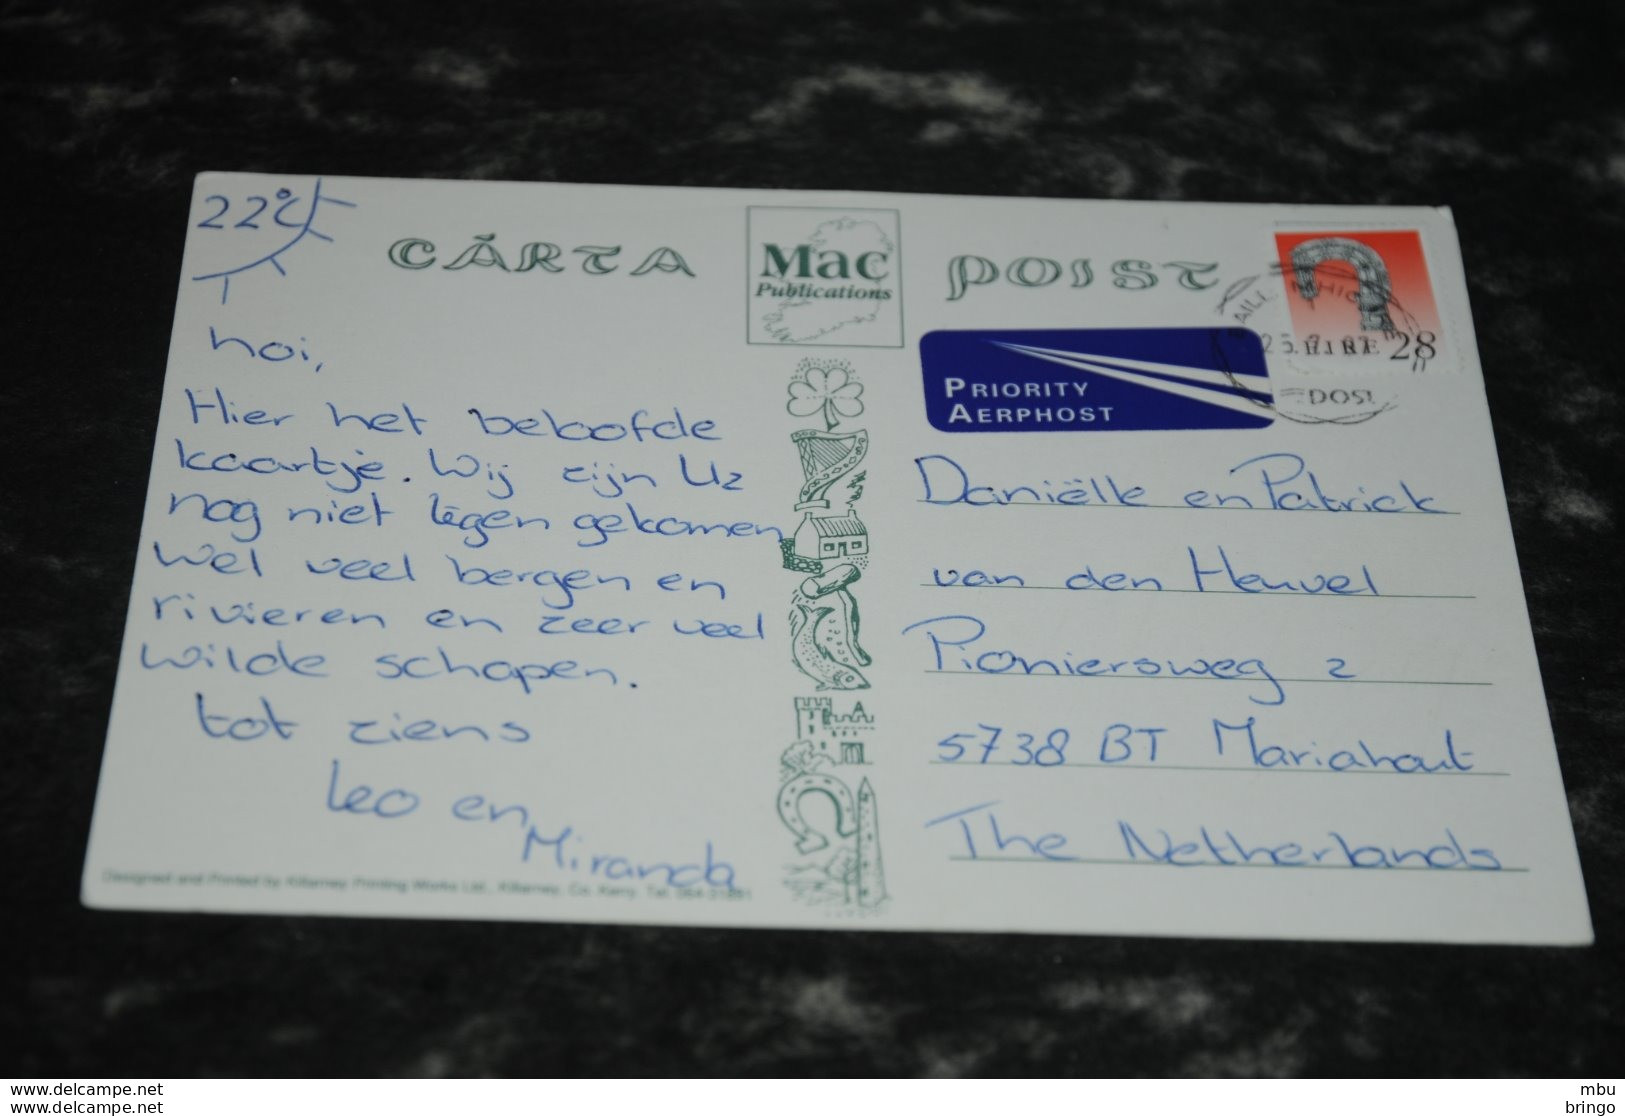 22°C
CÁRTA
Mac
Publications
POIST
hoi,
Hier het beloofde
kaartje. Wij zijn U2
nog niet tegen gekomen
wel veel bergen en
rivieren en zeer veel
wilde schapen.
tot ziens
Leo en
Miranda
Designed and Printed by Killarney Printing Works Ltd., Killarney, Co. Kerry. Tel.
EIRE 28
PRIORITY
AERPHOST
Daniëlle en Patrick
van den Heuvel
Pioniersweg 2
5738 BT Mariahout
The Netherlands
www.delcampe.net
www.delcampe.net
mbu
bringo